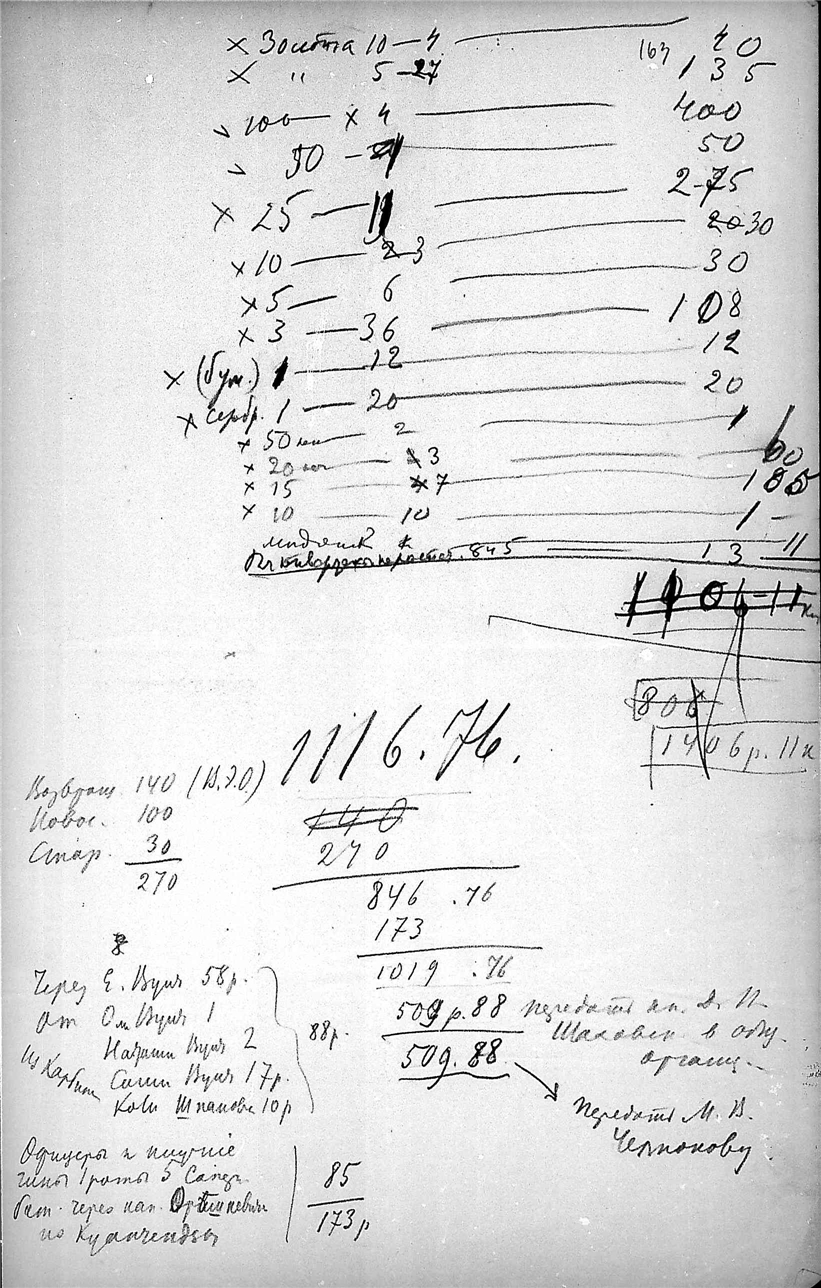 × Золота 10 — 4 — 40
× " 5 — 27 163 135
100 — × 4 — 400
50 — 1 — 50
× 25 — 11 — 275
× 10 — 2 3 — 20 30
× 5 — 6 — 30
× 3 — 36 — 108
× (бум.) 1 — 12 — 12
× серебр. 1 — 20 — 20
× 50 коп — 2 — 1
× 20 коп — 3 — 60
× 15 — 4 7 — 1 05
× 10 — 10 — 1 —
845 — 13 — 11
1106-11
806
1406 р. 11 к
1116.76.
Возвращ. 140 (В.Э.О)
Новос. 100
Стар. 30
270
140
270
846.76
173
1019.76
509 р. 88 передать кн. Д. И.
Шаховск. в общ.
органи.
509.88
передать М. В.
Челнокову
Через Е. Вуич 58 р.
От Ол Вуич 1
Наташи Вуич 2
из Харбина Саши Вуич 17 р.
Коли Шпаковс 10 р
88 р.
Офицеры и нижние
чины 1 роты 5 Сапер.
бат. через кап.
из Куанчендзы
85
173 р